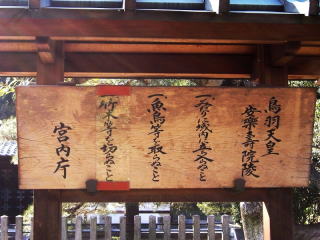 鳥羽天皇
安樂寿院陵
一、域内に立入らぬこと
一、魚鳥等を取らぬこと
一、竹木等を切らぬこと
宮内庁